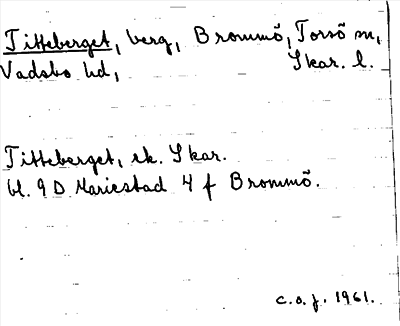 Titteberget, berg, Brommö, Torsö sn,
Vadsbo hd, Skar. l.
Titteberget, ek. Skar.
bl. 9 D Mariestad 4 f Brommö.
c.o.j. 1961.